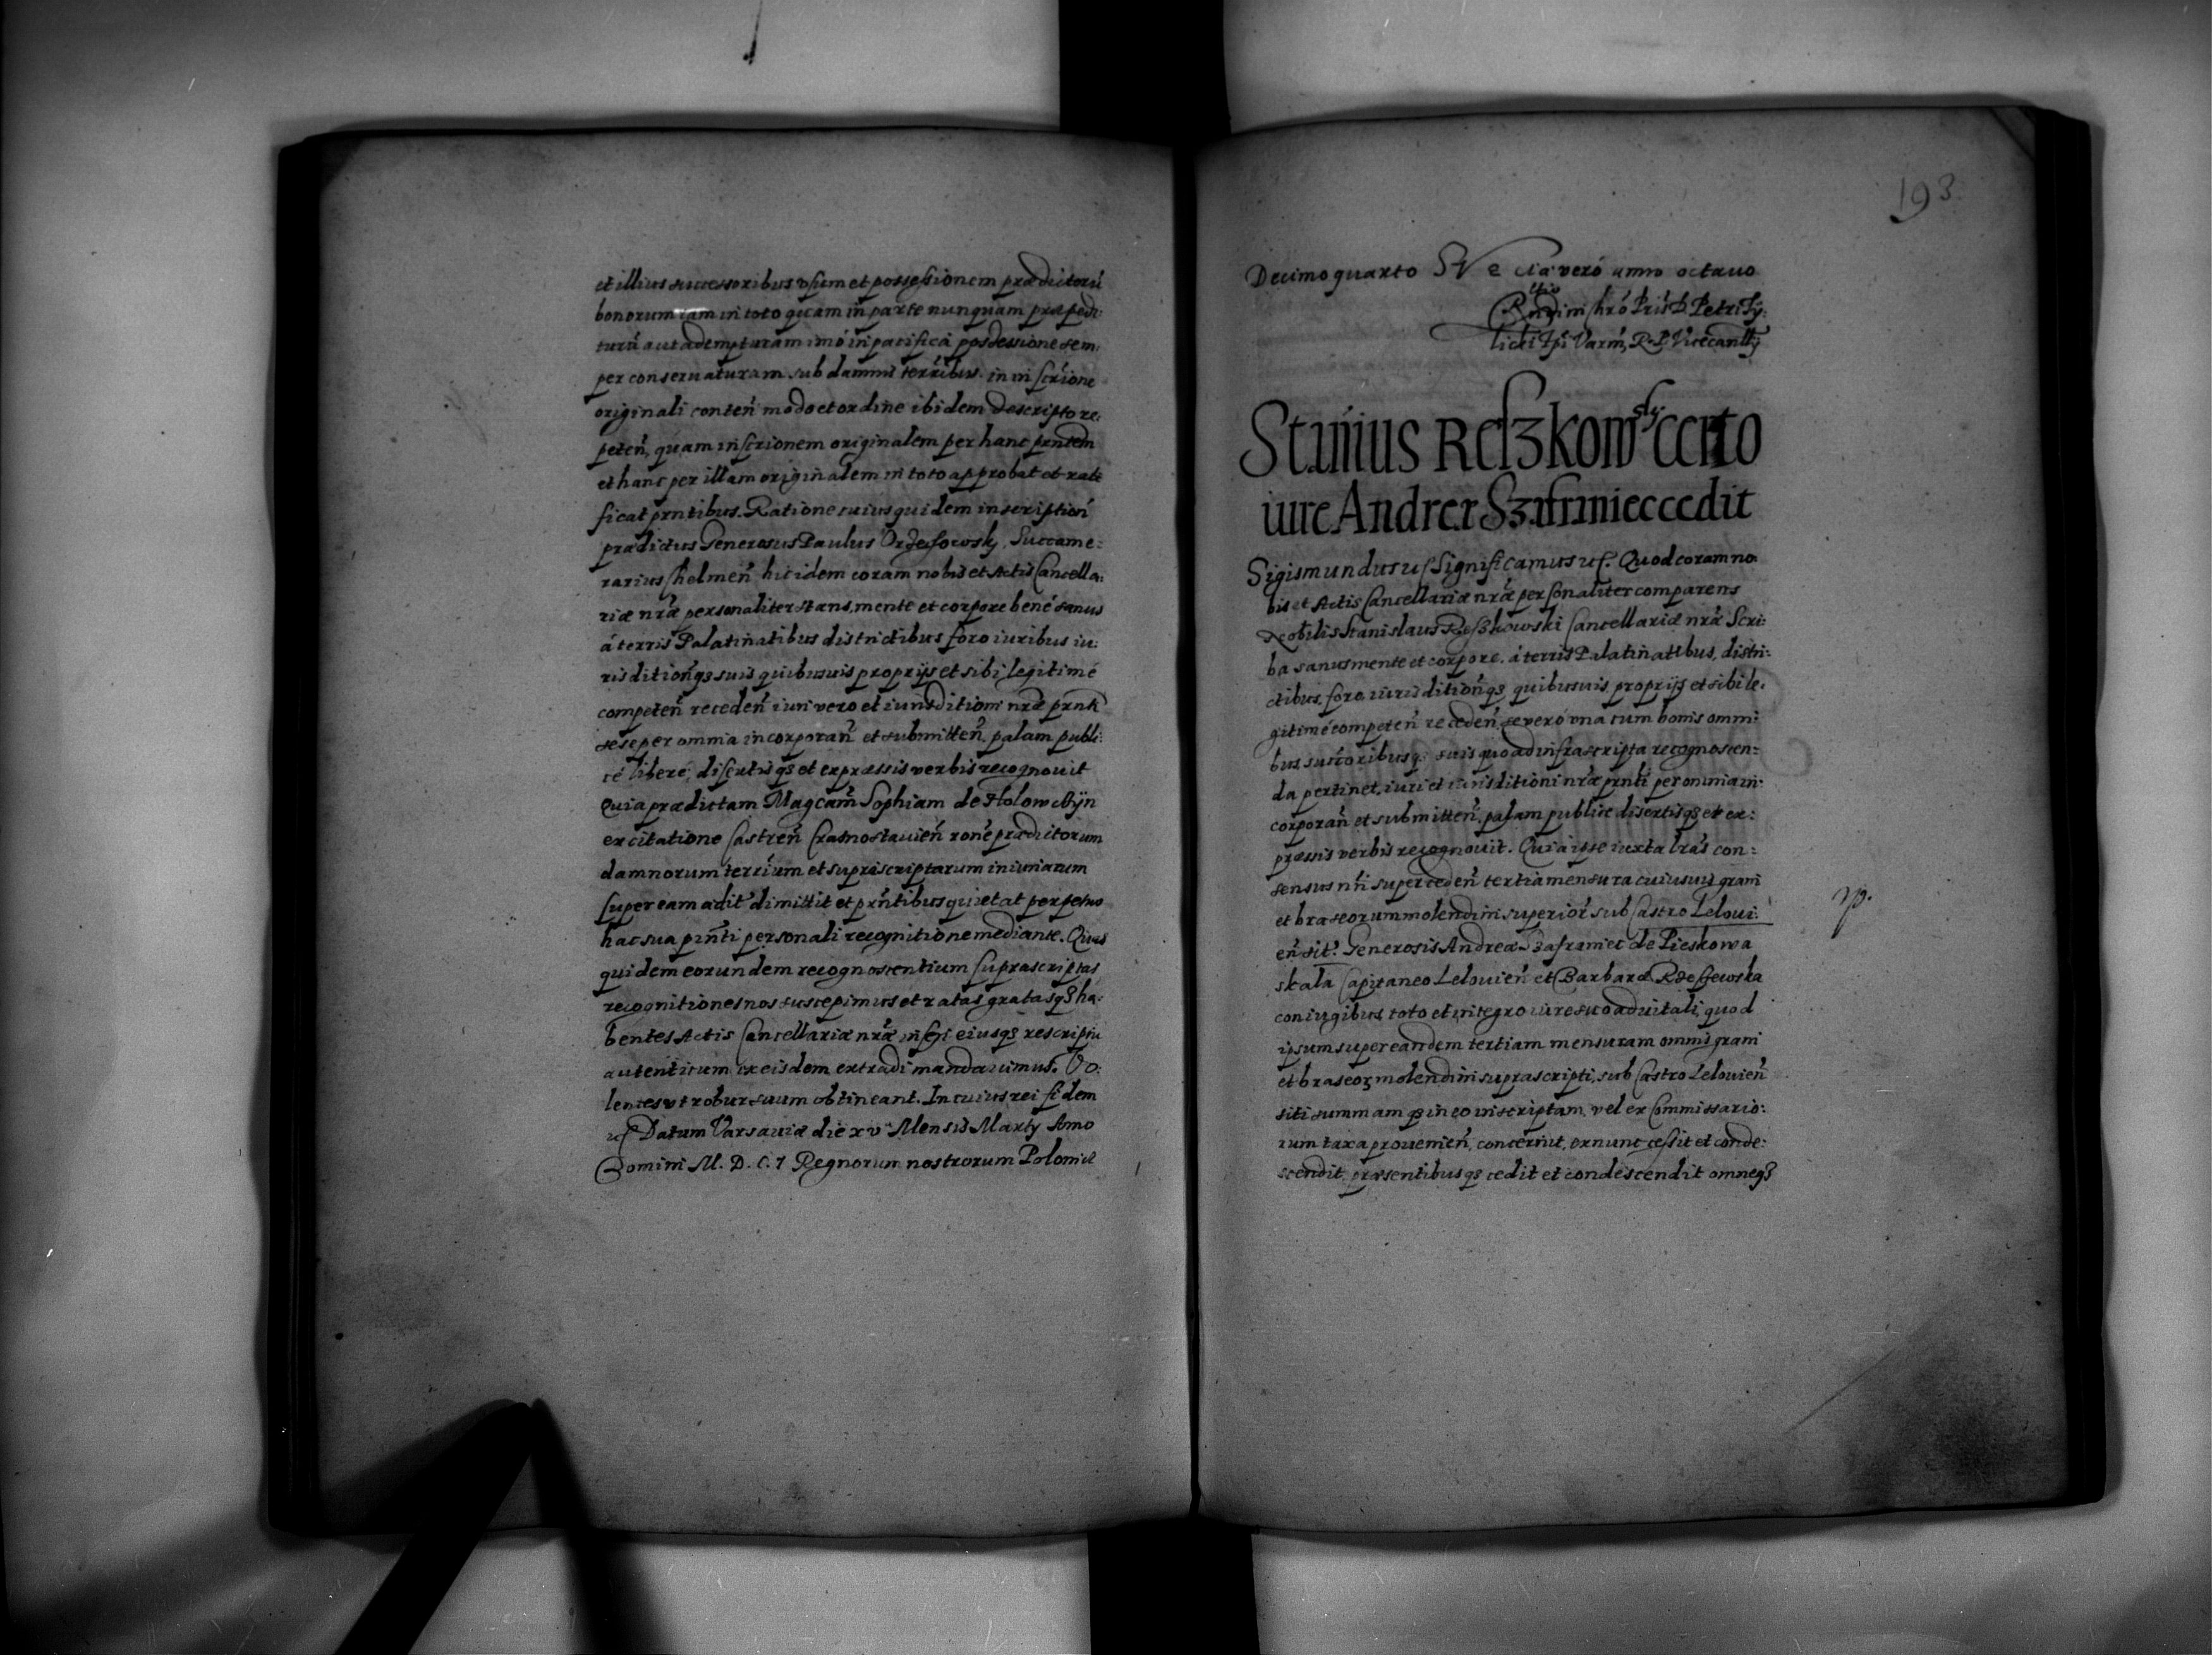 et illius successoribus usum et possessionem prædictorũ
bonorum tam in toto qcam in parte nunquam præpedi:
turũ aut adempturam imó in pacifica possessione sem:
per conservaturam sub damnis terribus in inscrione
originali conteñ modo et ordine ibidem descripto re:
peteñ, quam inscrionem originalem per hanc prntem
et hanc per illam originalem in toto approbat et rati
ficat prntibus. Ratione cuius quidem inscription
prædictus Generosus Paulus Orzechowsky Succame:
rarius Chelmeñ hic idem coram nobis et Actis Cancella:
riæ nræ personaliter stans, mente et corpore bené sanus
á terris Palatinatibus districtibus foro iuribus iu:
risditionqȝ suis quibusuis proprijs et sibi legitimé
competeñ recedeñ iuri vero et iurisditioni nræ prnti
sese per omnia incorporañ et submitteñ palam publi:
cé liberé, disertisqȝ et expressis verbis recognouit
Quia prædictam Magcam Sophiam de Holowczyn
ex citatione Castreñ Crasnostauieñ rone prædictorum
damnorum terrium et suprascriptarum iniuriarum
super eam adit dimittit et prntibus quietat perpetuo
hac sua prnti personali recognitione mediante. Quas
quidem eorundem recognoscentium suprascriptas
recognitiones nos suscepimus et ratas gratasqȝ ha:
bentes Actis Cancellariæ nræ inseri eiusqȝ rescriptu
autenticum ex eisdem extradi mandauimus. Vo:
lentes ut robur suum obtineant. In cuius rei fidem
uſ Datum Varsaviæ die xv Mensis Martij Anno
Domini M. D. C. 1 Regnorum nostrorum Poloniæ
193
Decimo quarto Sveciæ veró anno octauo
Rndimi Chro Pris D. Petri Ty:
licki Epi Varm, R. P. Vicecanllrij
Stanius Reszkowsky certo
iure Andreæ Szafraniec cedit
Sigismundus uſ Significamus uſ. Quod coram no:
bis et Actis Cancellariæ nræ personaliter comparens
Nobilis Stanislaus Reszkowski Cancellariæ nræ Scri:
ba sanus mente et corpore. á terris Palatinatibus, distri:
ctibus, foro, iurisditionqȝ quibusuis proprijs et sibi le:
gitimé competeñ recedeñ, se veró una cum bonis omni:
bus succoribusqȝ suis quo ad infrascripta recognoscen:
da pertinet, iuri et iurisditioni nræ prnti per omnia in:
corporañ et submitteñ, palam publicé disertisqȝ et ex:
pressis verbis recognouit. Quia ipse iuxta lras con:
sensus nri super cedeñ tertia mensura cuiusuis grani
et braseorum molendini superior sub Castro Leloui:
eñ sit. Generosis Andreæ Szafraniec de Pieskowa
skala Capitaneo Lelouieñ et Barbaræ
coniugibus toto et integro iure suo aduitali, quod
ipsum super eandem tertiam mensuram omnis grani
et braseoȝ molendini suprascripti, sub Castro Lelouieñ
siti summamqȝ in eo inscriptam, vel ex Commissario:
rum taxa prouenieñ, concernit, ex nunc cessit et conde:
scendit, præsentibusqȝ cedit et condescendit omneqȝ